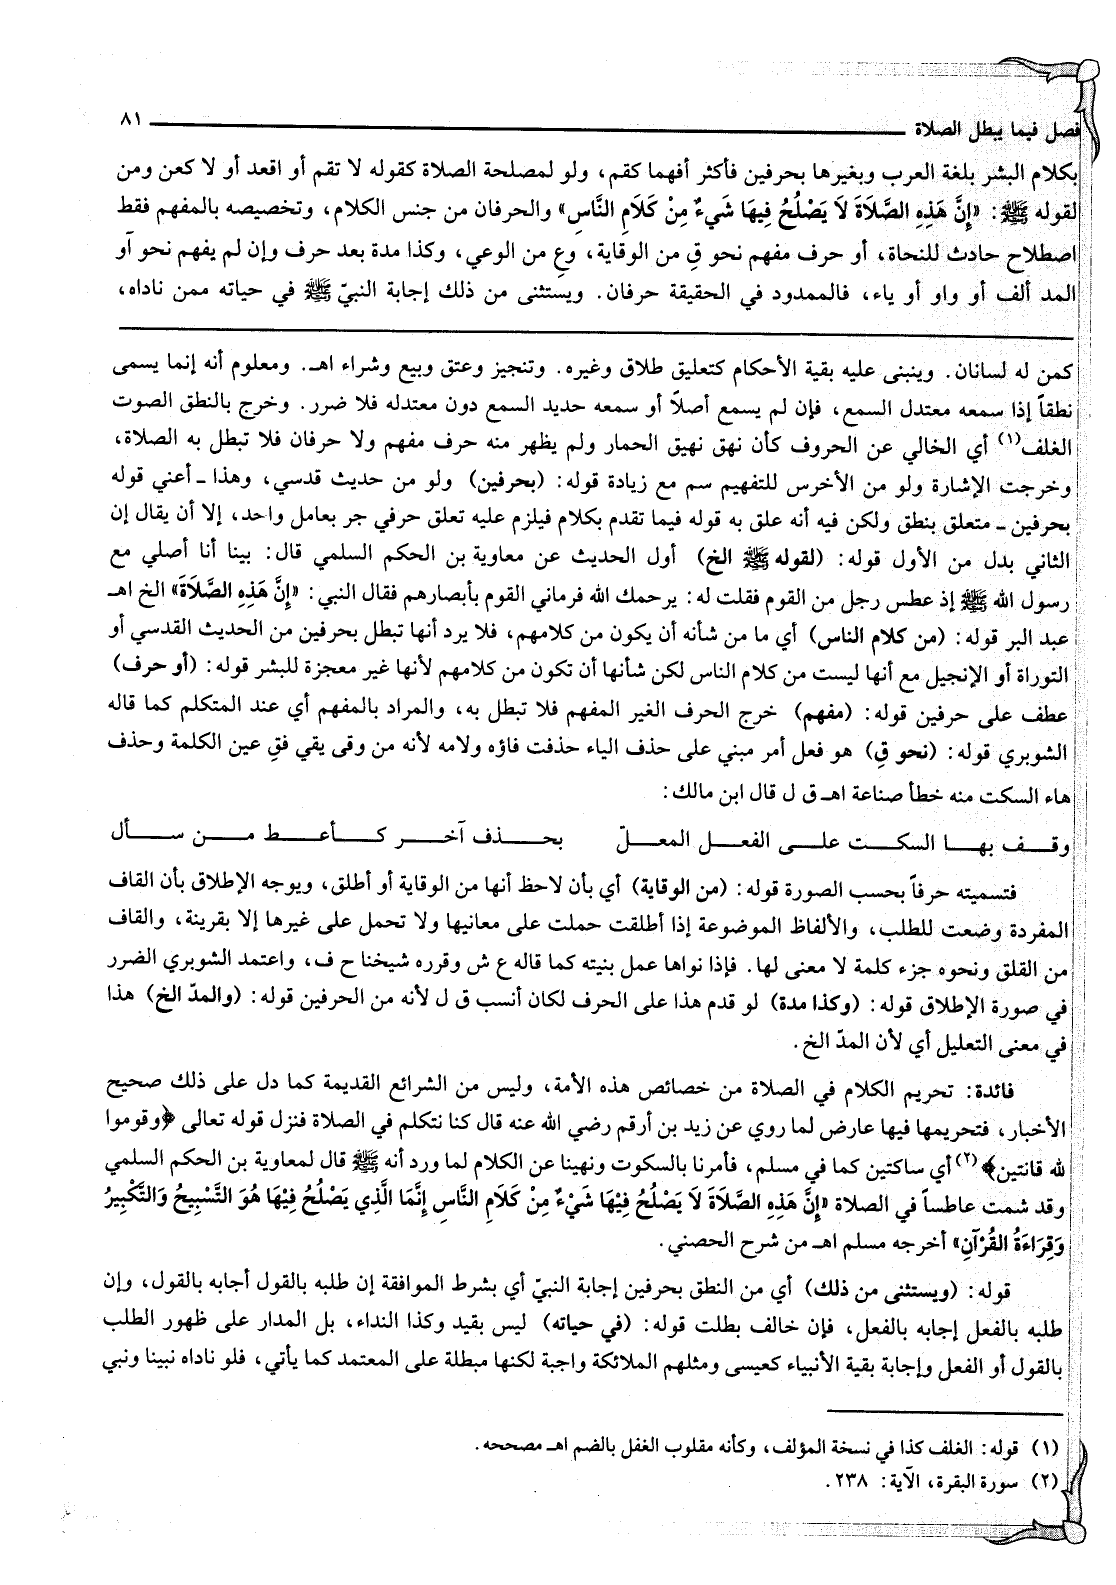 فصل فيما يبطل الصلاة ٨١
بكلام البشر بلغة العرب وبغيرها بحرفين فأكثر أفهما كقم، ولو لمصلحة الصلاة كقوله لا تقم أو اقعد أو لا كعن ومن
لقوله ﷺ: «إِنَّ هَذِهِ الصَّلَاةَ لَا يَصْلُحُ فِيهَا شَيْءٌ مِنْ كَلَامِ النَّاسِ» والحرفان من جنس الكلام، وتخصيصه بالمفهم فقط
اصطلاح حادث للنحاة، أو حرف مفهم نحو قِ من الوقاية، وعِ من الوعي، وكذا مدة بعد حرف وإن لم يفهم نحو آو
المد ألف أو واو أو ياء، فالممدود في الحقيقة حرفان. ويستثنى من ذلك إجابة النبيّ ﷺ في حياته ممن ناداه،
كمن له لسانان. وينبني عليه بقية الأحكام كتعليق طلاق وغيره. وتنجيز وعتق وبيع وشراء اهـ. ومعلوم أنه إنما يسمى
نطقاً إذا سمعه معتدل السمع، فإن لم يسمع أصلاً أو سمعه حديد السمع دون معتدله فلا ضرر. وخرج بالنطق الصوت
الغلف(١) أي الخالي عن الحروف كأن نهق نهيق الحمار ولم يظهر منه حرف مفهم ولا حرفان فلا تبطل به الصلاة،
وخرجت الإشارة ولو من الأخرس للتفهيم سم مع زيادة قوله: (بحرفين) ولو من حديث قدسي، وهذا ـ أعني قوله
بحرفين ـ متعلق بنطق ولكن فيه أنه علق به قوله فيما تقدم بكلام فيلزم عليه تعلق حرفي جر بعامل واحد، إلا أن يقال إن
الثاني بدل من الأول قوله: (لقوله ﷺ الخ) أول الحديث عن معاوية بن الحكم السلمي قال: بينا أنا أصلي مع
رسول الله ﷺ إذ عطس رجل من القوم فقلت له: يرحمك الله فرماني القوم بأبصارهم فقال النبي: «إِنَّ هَذِهِ الصَّلَاةَ» الخ اهـ
عبد البر قوله: (من كلام الناس) أي ما من شأنه أن يكون من كلامهم، فلا يرد أنها تبطل بحرفين من الحديث القدسي أو
التوراة أو الإنجيل مع أنها ليست من كلام الناس لكن شأنها أن تكون من كلامهم لأنها غير معجزة للبشر قوله: (أو حرف)
عطف على حرفين قوله: (مفهم) خرج الحرف الغير المفهم فلا تبطل به، والمراد بالمفهم أي عند المتكلم كما قاله
الشوبري قوله: (نحو قِ) هو فعل أمر مبني على حذف الياء حذفت فاؤه ولامه لأنه من وقى يقي فقِ عين الكلمة وحذف
هاء السكت منه خطأ صناعة اهـ ق ل قال ابن مالك:
وقف بها السكت على الفعل المعلّ بحذف آخر كأعط من سأل
فتسميته حرفاً بحسب الصورة قوله: (من الوقاية) أي بأن لاحظ أنها من الوقاية أو أطلق، ويوجه الإطلاق بأن القاف
المفردة وضعت للطلب، والألفاظ الموضوعة إذا أطلقت حملت على معانيها ولا تحمل على غيرها إلا بقرينة، والقاف
من القلق ونحوه جزء كلمة لا معنى لها. فإذا نواها عمل بنيته كما قاله ع ش وقرره شيخنا ح ف، واعتمد الشوبري الضرر
في صورة الإطلاق قوله: (وكذا مدة) لو قدم هذا على الحرف لكان أنسب ق ل لأنه من الحرفين قوله: (والمدّ الخ) هذا
في معنى التعليل أي لأن المدّ الخ.
فائدة: تحريم الكلام في الصلاة من خصائص هذه الأمة، وليس من الشرائع القديمة كما دل على ذلك صحيح
الأخبار، فتحريمها فيها عارض لما روي عن زيد بن أرقم رضي الله عنه قال كنا نتكلم في الصلاة فنزل قوله تعالى ﴿وقوموا
لله قانتين﴾(٢) أي ساكتين كما في مسلم، فأمرنا بالسكوت ونهينا عن الكلام لما ورد أنه ﷺ قال لمعاوية بن الحكم السلمي
وقد شمت عاطساً في الصلاة «إِنَّ هَذِهِ الصَّلَاةَ لَا يَصْلُحُ فِيهَا شَيْءٌ مِنْ كَلَامِ النَّاسِ إِنَّمَا الَّذِي يَصْلُحُ فِيهَا هُوَ التَّسْبِيحُ وَالتَّكْبِيرُ
وَقِرَاءَةُ القُرْآنِ» أخرجه مسلم اهـ من شرح الحصني.
قوله: (ويستثنى من ذلك) أي من النطق بحرفين إجابة النبيّ أي بشرط الموافقة إن طلبه بالقول أجابه بالقول، وإن
طلبه بالفعل إجابه بالفعل، فإن خالف بطلت قوله: (في حياته) ليس بقيد وكذا النداء، بل المدار على ظهور الطلب
بالقول أو الفعل وإجابة بقية الأنبياء كعيسى ومثلهم الملائكة واجبة لكنها مبطلة على المعتمد كما يأتي، فلو ناداه نبينا ونبي
(١) قوله: الغلف كذا في نسخة المؤلف، وكأنه مقلوب الغفل بالضم اهـ مصححه.
(٢) سورة البقرة، الآية: ٢٣٨.